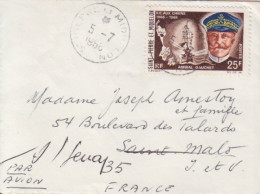 ST PIERRE ET MIQUELON
5-7
1968
SAINT-PIERRE ET MIQUELON
POSTES
AMIRAL GAUCHET
25F
Madame Joseph Amestoy
et famille
54 Boulevard des Talards
Saint Malo
35
I. et V.
PAR
AVION
FRANCE